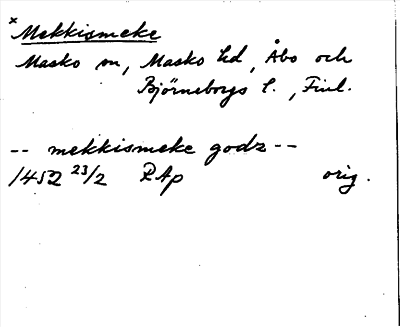 × Mekkismeke
Masko sn, Masko hd, Åbo och
Björneborgs l., Finl.
-- mekkismeke godz --
1452 23/2 RAp orig.